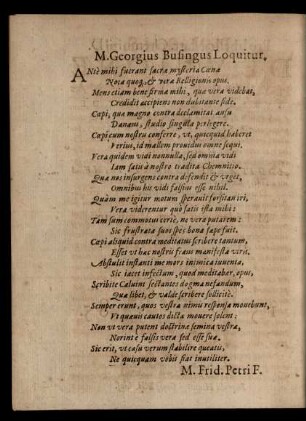 M. Georgius Busingus Loquitur.
ANtè mihi fuerant sacræ mysteria Cœnæ
Nota quoq, & veræ Relligionis opus,
Mens etiam bene firma mihi, quæ vera videbas,
Credidit accipiens non dubitante fide,
Capi, quæ magno contra declamitat ausu
Danæus, studio singula perlegere.
Capi cum nostru conferre, vt, quicquid haberet
Verius, id mallem providus omne sequi.
Vera quidem vidi nonnulla, sed omnia vidi
Iam satis à nostro tradita Chemnitio.
Quæ nos insurgens contra defendit & vrget,
Omnibus his vidi falsius esse nihil.
Quàm me igitur motum speravit forsitan iri,
Vera viderentur quò satis ista mihi:
Tam sum commotus certè, ne vera putarem:
Sic frustrata suos spes bona sæpe fuit.
Cæpi aliquid contra meditatus scribere tantum,
Esset vt hac nostris fraus manifesta viris,
Abstulit instanti me mors inimica iuventa,
Sic iacet infectum, quod meditabar, opus,
Scribite Calvini sectantes dogma nefandum,
Quælibet, & valde scribere solliciti.
Semper erunt, quos vestra nimis responsa movebunt,
Vt quavis cautes dicta movere solent:
Non vt vera putent doctrinæ semina vestræ,
Norint è falsis vera sed esse sua.
Sic erit, vt casu verum stabilire queatis,
Ne quicquam vobis fiat inutiliter.
M. Frid. Petri F.